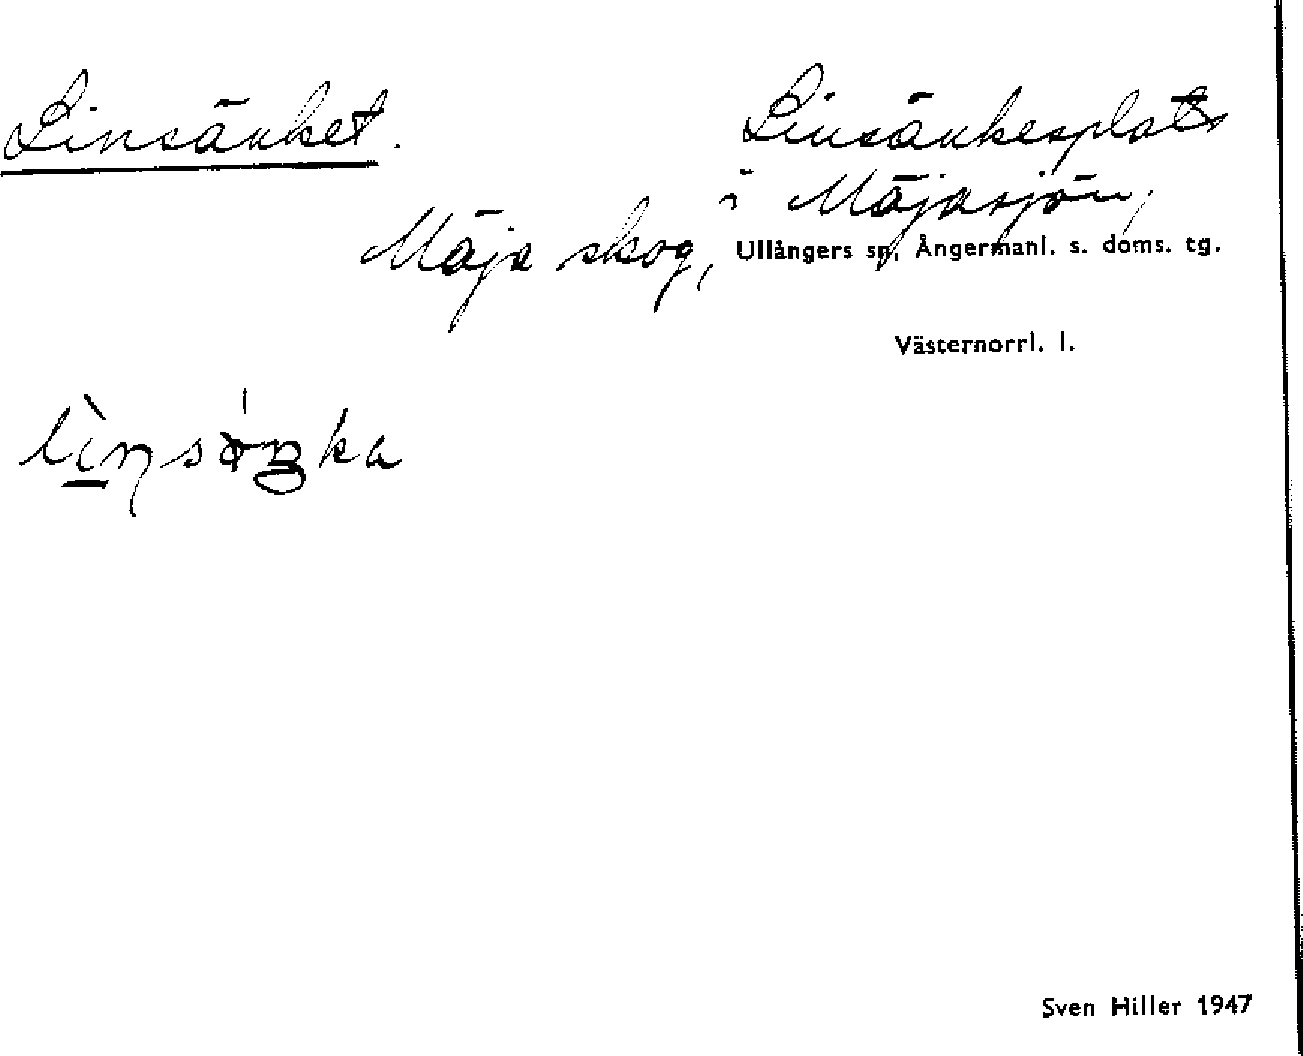 Linsänket.
Linsänkesplats
i Mäjasjön,
Mäja skog, Ullångers sn, Ångermanl. s. doms. tg.
Västernorrl. l.
Sven Hiller 1947